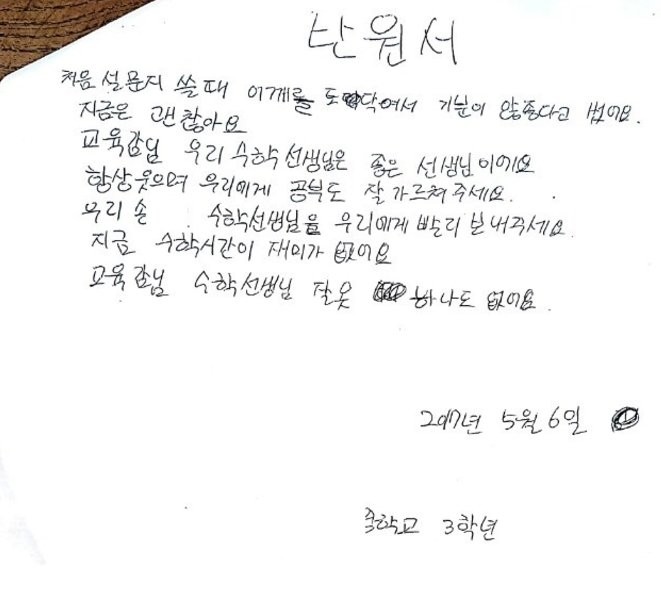 탄원서
처음 설문지 쓸때 어깨를 토닥여서 기분이 않좋다고 썼어요.
지금은 괜찮아요
교육감님 우리 수학선생님은 좋은 선생님이에요
항상웃으며 우리에게 공부도 잘 가르쳐주세요.
우리 손 수학선생님을 우리에게 빨리 보내주세요.
지금 수학시간이 재미가 없어요
교육감님 수학선생님 잘못 하나도 없어요.
2017년 5월 6일
중학교 3학년